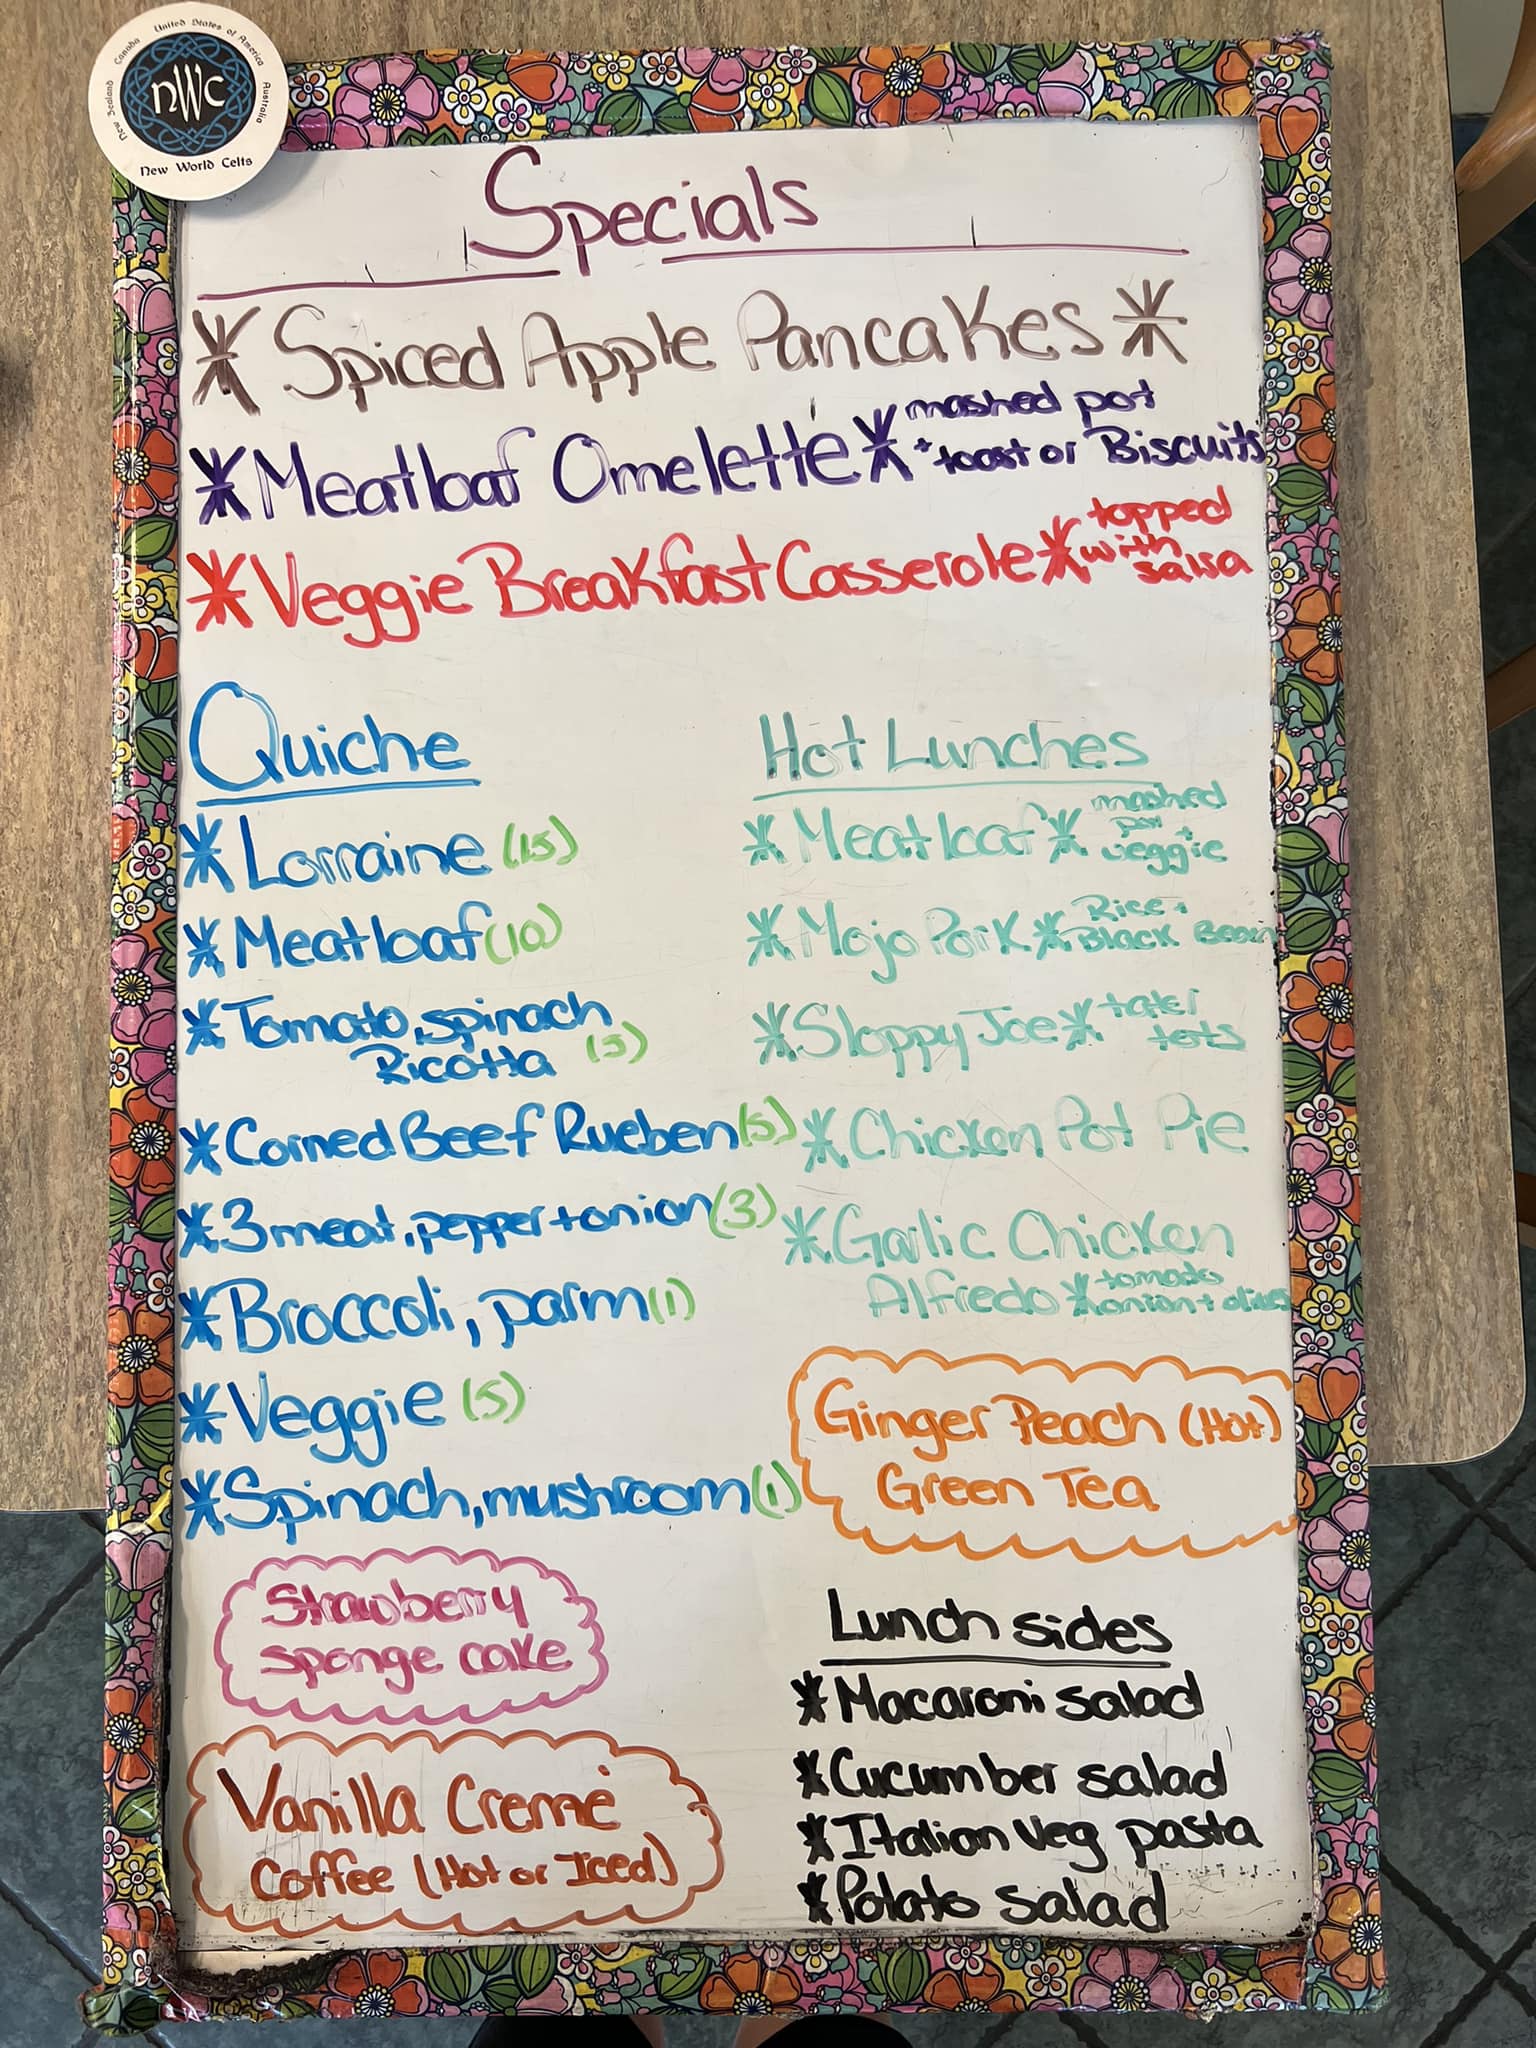 New Zealand Canada United States of America Australia
nwc
New World Celts
Specials
* Spiced Apple Pancakes *
* Meatloaf Omelette * mashed pot
+ toast or Biscuits
* Veggie Breakfast Casserole * topped
with
salsa
Quiche
* Lorraine (15)
* Meatloaf (10)
* Tomato, spinach
Ricotta (5)
* Corned Beef Rueben (5)
* 3 meat, pepper + onion (3)
* Broccoli, parm (1)
* Veggie (5)
* Spinach, mushroom (1)
Strawberry
sponge cake
Vanilla Cremé
Coffee (Hot or Iced)
Hot Lunches
* Meatloaf * mashed
pot +
veggie
* Mojo Pork * Rice +
Black Bean
* Sloppy Joe * tater
tots
* Chicken Pot Pie
* Garlic Chicken
Alfredo * tomato
onion + olives
Ginger Peach (Hot)
Green Tea
Lunch sides
* Macaroni salad
* Cucumber salad
* Italian veg pasta
* Potato salad